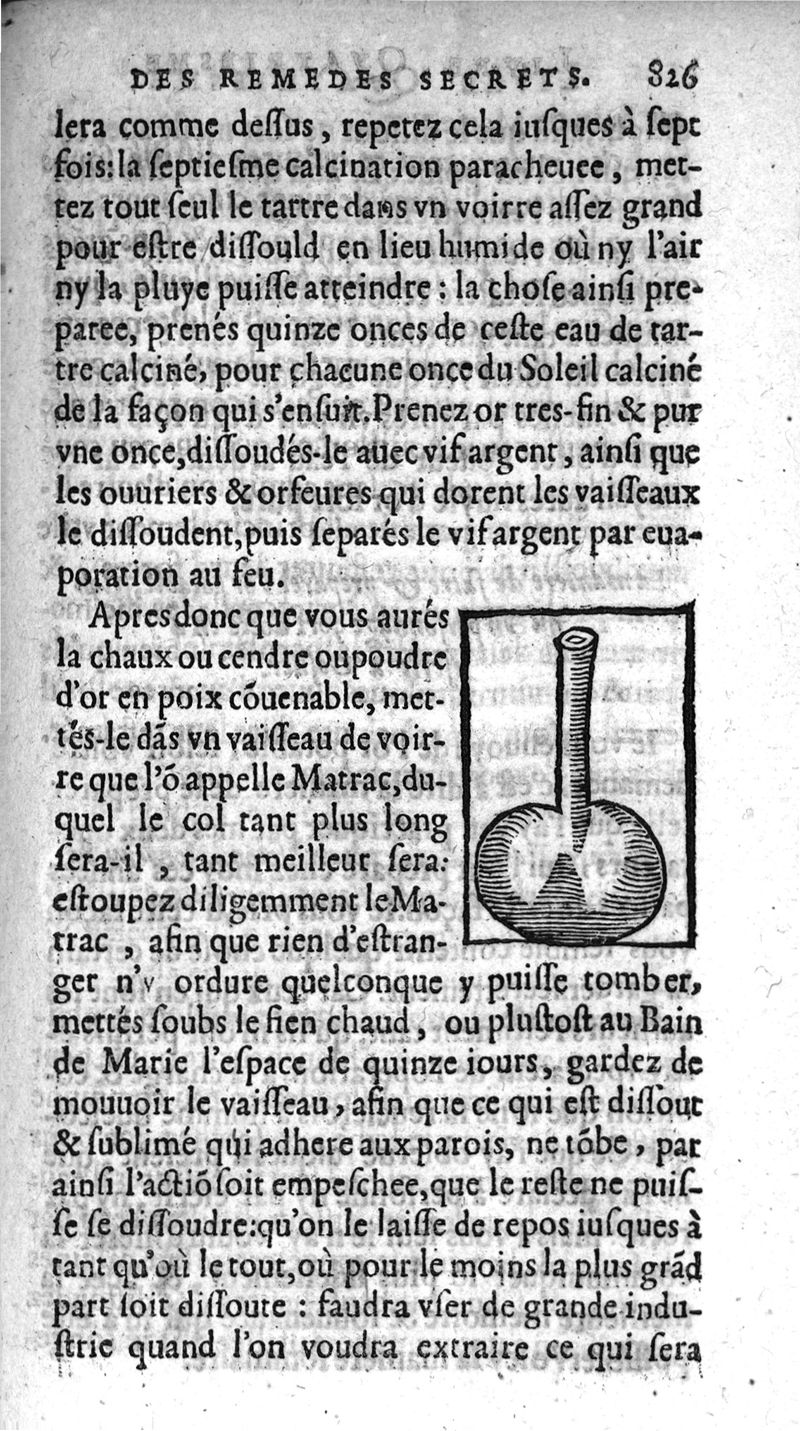 DES REMEDES SECRETS. 826
lera comme deſſus, repetez cela iuſques à ſept
fois: la ſeptieſme calcination paracheuee, met-
tez tout ſeul le tartre dans vn voirre aſſez grand
pour eſtre diſſould en lieu humide où ny l'air
ny la pluye puiſſe atteindre : la choſe ainſi pre-
paree, prenés quinze onces de ceſte eau de tar-
tre calciné, pour chacune once du Soleil calciné
de la façon qui s'enſuit. Prenez or tres-fin & pur
vne once, diſſoudés-le auec vif argent, ainſi que
les ouuriers & orfeures qui dorent les vaiſſeaux
le diſſoudent, puis ſeparés le vif argent par eua-
poration au feu.
Apres donc que vous aurés
la chaux ou cendre ou poudre
d'or en poix cõuenable, met-
tés-le dãs vn vaiſſeau de voir-
re que l'õ appelle Matrac, du-
quel le col tant plus long
ſera-il , tant meilleur ſera:
eſtoupez diligemment le Ma-
trac , afin que rien d'eſtran-
ger n'y ordure quelconque y puiſſe tomber,
mettés ſoubs le fien chaud, ou pluſtoſt au Bain
de Marie l'eſpace de quinze iours, gardez de
mouuoir le vaiſſeau, afin que ce qui eſt diſſout
& ſublimé qui adhere aux parois, ne tõbe, par
ainſi l'actiõ ſoit empeſchee, que le reſte ne puiſ-
ſe ſe diſſoudre: qu'on le laiſſe de repos iuſques à
tant qu'où le tout, où pour le moins la plus grãd
part ſoit diſſoute : faudra vſer de grande indu-
ſtrie quand l'on voudra extraire ce qui ſera